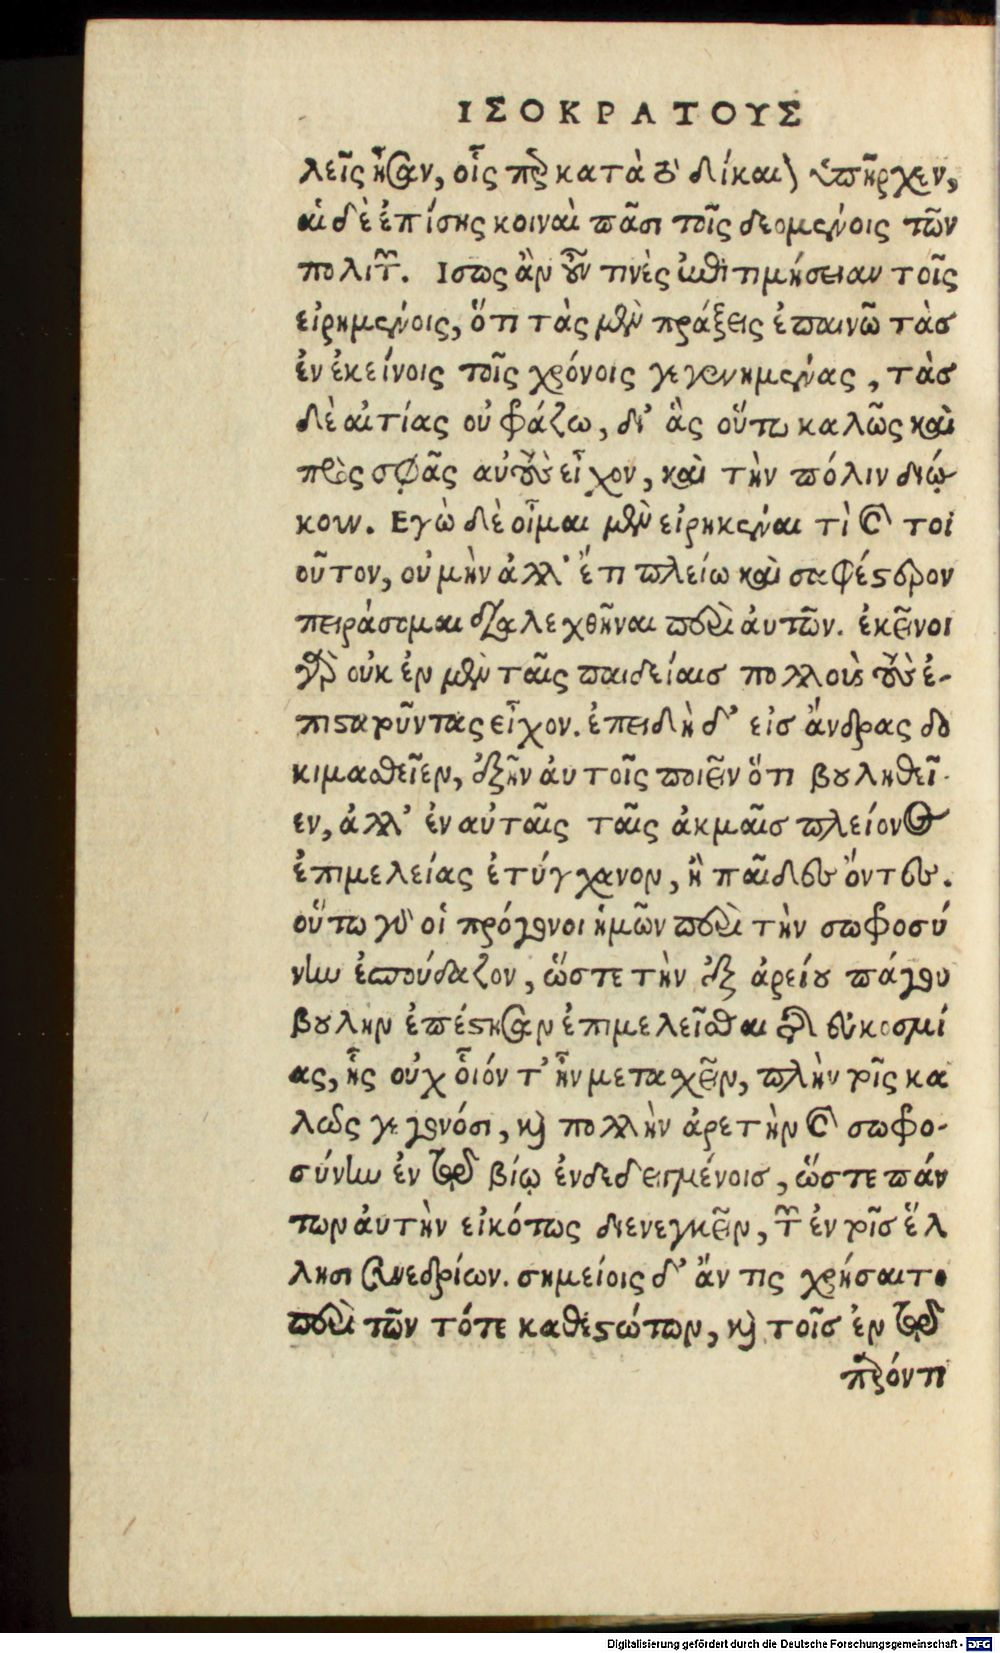 ΙΣΟΚΡΑΤΟΥΣ
λεῖς ἦσαν, οἷς περ κατὰ τὸ δίκαιον ὑπῆρχεν,
αἱ δὲ ἐπίσης κοιναὶ πᾶσι τοῖς δεομένοις τῶν
πολιτῶν. Ισως ἂν οὖν τινὲς ἐπιτιμήσειαν τοῖς
εἰρημένοις, ὅτι τὰς μὲν πράξεις ἐπαινῶ τὰσ
ἐν ἐκείνοις τοῖς χρόνοις γεγενημένας, τὰσ
δὲ αἰτίας οὐ φράζω, δι' ἃς οὕτω καλῶς καὶ
πρὸς σφᾶς αὐτοὺς εἶχον, καὶ τὴν πόλιν διῴ
κουν. Εγὼ δὲ οἶμαι μὲν εἰρηκέναι τὶ καὶ τοι
οῦτον, οὐ μὴν ἀλλ' ἔτι πλείω καὶ σαφέστερον
πειράσομαι διαλεχθῆναι περὶ ἀυτῶν. ἐκεῖνοι
γὰρ οὐκ ἐν μὲν ταῖς παιδείαισ πολλοὺς τοὺς ἐ-
πιστατοῦντας εἶχον. ἐπειδὴ δ' εἰσ ἄνδρας δο
κιμασθεῖεν, ἐξῆν ἀυτοῖς ποιεῖν ὅτι βουληθεῖ-
εν, ἀλλ' ἐν αὐταῖς ταῖς ἀκμαῖσ πλείονος
ἐπιμελείας ἐτύγχανον, ἢ παῖδες ὄντες.
οὕτω γὰρ οἱ πρόγονοι ἡμῶν περὶ τὴν σωφροσύ
νην ἐσπούδαζον, ὥστε τὴν ἐξ ἀρείου πάγου
βουλὴν ἐπέστησαν ἐπιμελεῖσθαι τῆς εὐκοσμί
ας, ἧς οὐχ οἷόν τ' ἦν μετασχεῖν, πλὴν τοῖς κα
λῶς γεγονόσι, καὶ πολλὴν ἀρετὴν καὶ σωφρο-
σύνην ἐν τῷ βίῳ ἐνδεδειγμένοισ, ὥστε πάν
των ἀυτὴν εἰκότως διενεγκεῖν, τῶν ἐν τοῖσ ἕλ
λησι συνεδρίων. σημείοις δ' ἄν τις χρήσαιτο
περὶ τῶν τότε καθεστώτων, καὶ τοῖσ ἐν τῷ
παρόντι
Digitalisierung gefördert durch die Deutsche Forschungsgemeinschaft - DFG